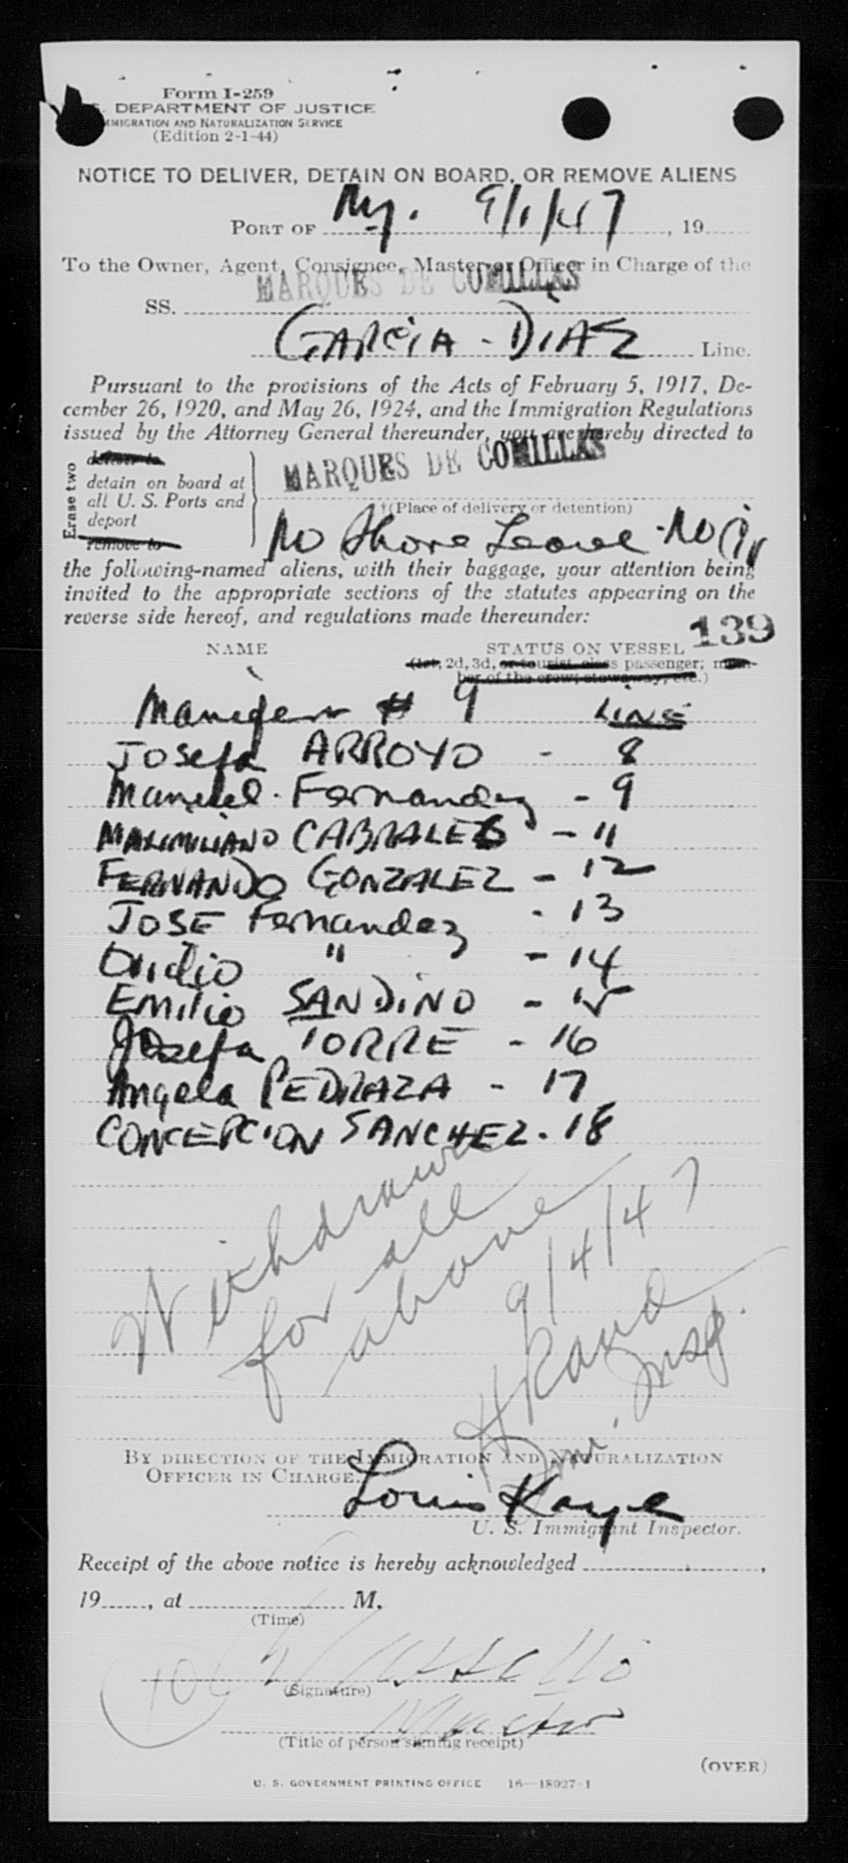 Form I-259
DEPARTMENT OF JUSTICE
IMMIGRATION AND NATURALIZATION SERVICE
(Edition 2-1-44)
NOTICE TO DELIVER, DETAIN ON BOARD, OR REMOVE ALIENS
PORT OF Ny. 9/1/47, 19
To the Owner, Agent, Consignee, Master or Officer in Charge of the
SS. MARQUES DE COMILLAS
GARCIA - DIAZ Line.
Pursuant to the provisions of the Acts of February 5, 1917, De-
cember 26, 1920, and May 26, 1924, and the Immigration Regulations
issued by the Attorney General thereunder, you are hereby directed to
Erase two
detain on board at
all U. S. Ports and
deport
remove to
MARQUES DE COMILLAS
†(Place of delivery or detention)
No Shore Leave - No
the following-named aliens, with their baggage, your attention being
invited to the appropriate sections of the statutes appearing on the
reverse side hereof, and regulations made thereunder:
139
NAME STATUS ON VESSEL
(1st, 2d, 3d, or tourist class passenger; mem-
ber of the crew; stowaway, etc.)
# 9 LINE
Josefa ARROYO - 8
Manuel Fernandez - 9
MAXIMILIANO CABRALES - 11
FERNANDO GONZALEZ - 12
JOSE Fernandez - 13
Ovidio " - 14
Emilio SANDINO - 15
Josefa TORRE - 16
Angela PEDRAZA - 17
CONCEPCION SANCHEZ - 18
Withdrawn
for all
above
9/4/47
H Rand
Imm. Insp.
BY DIRECTION OF THE IMMIGRATION AND NATURALIZATION
OFFICER IN CHARGE.
Louis Kaye
U. S. Immigrant Inspector.
Receipt of the above notice is hereby acknowledged ,
19 , at M.
(Time)
(Signature)
Master
(Title of person signing receipt)
(OVER)
U. S. GOVERNMENT PRINTING OFFICE 16—18027-1